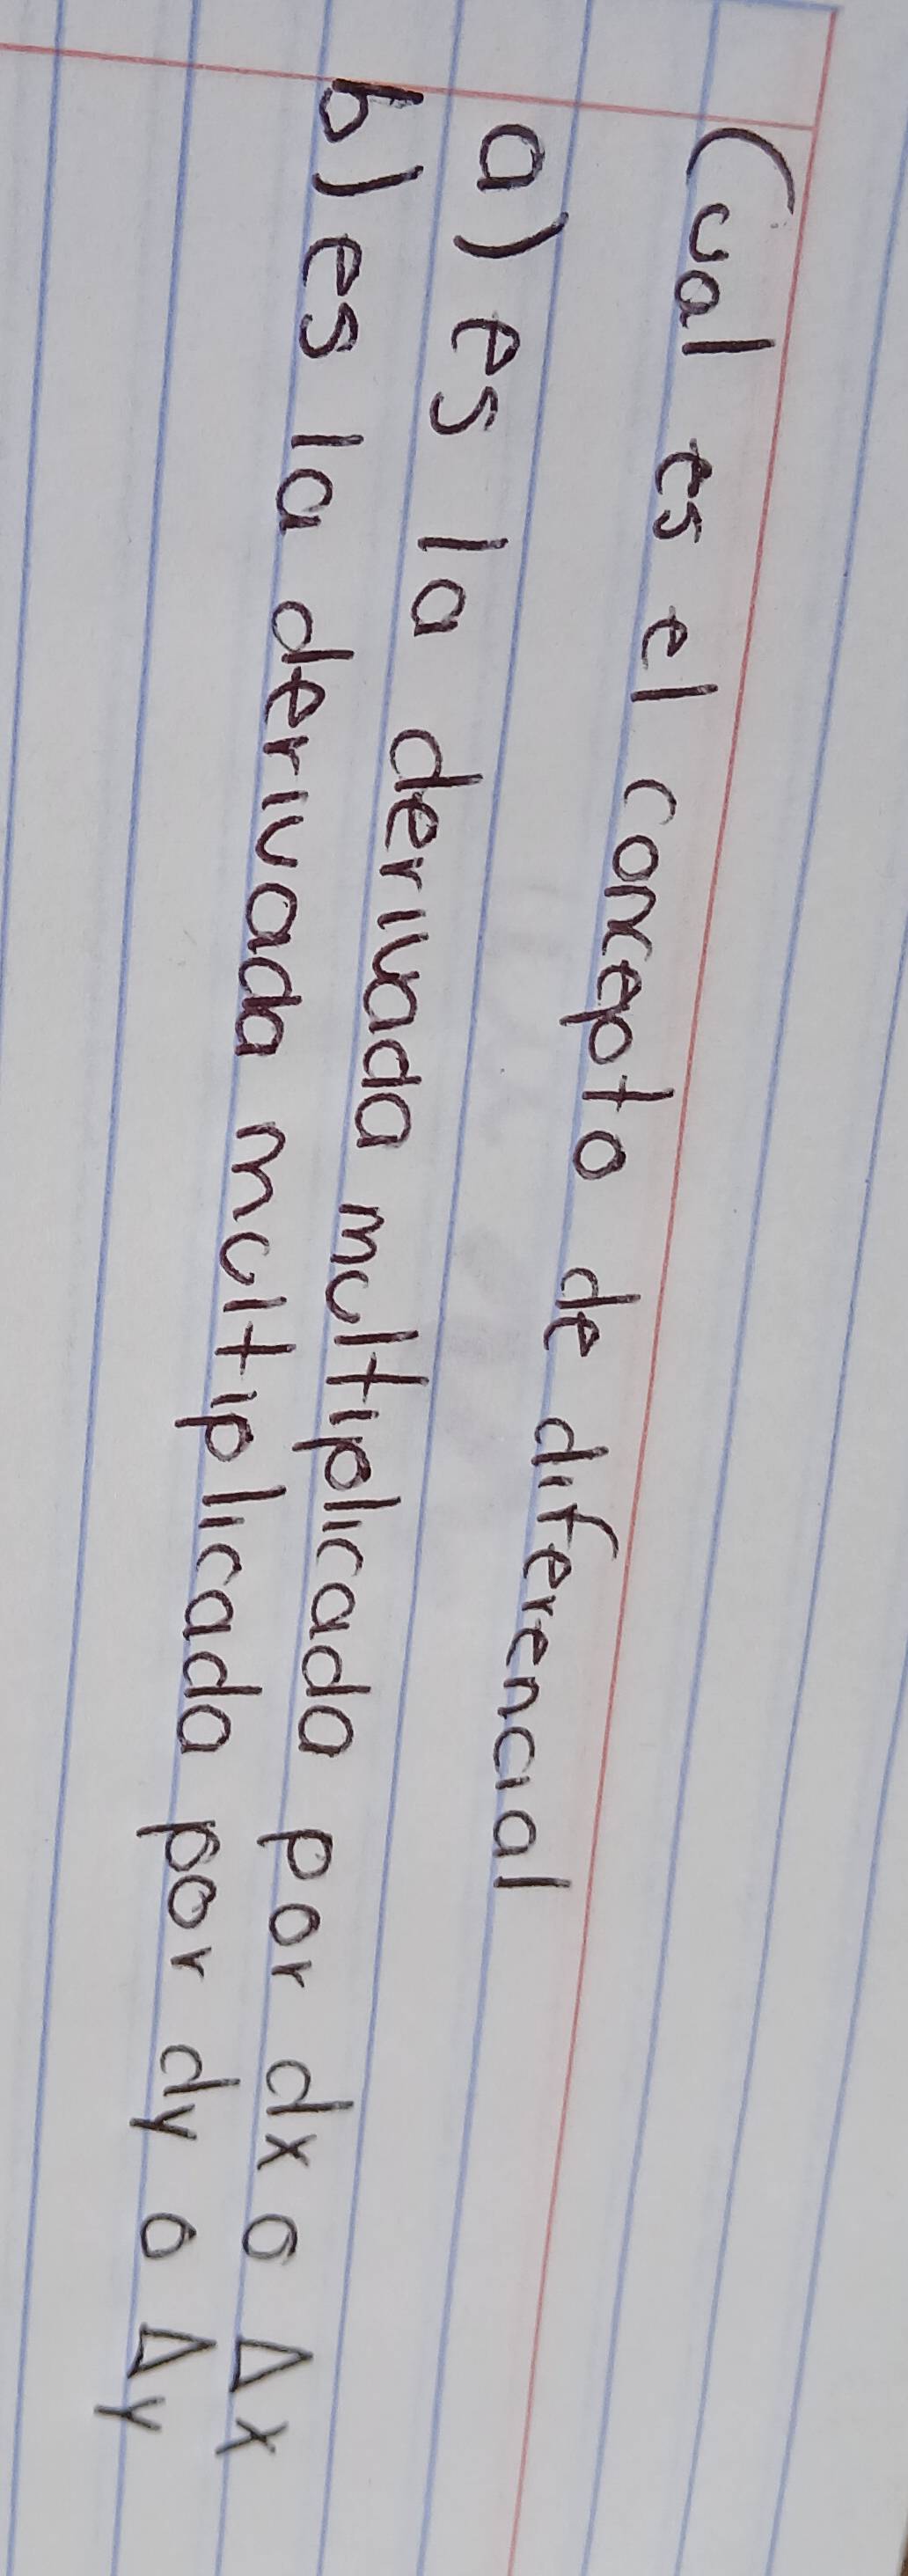 Cual es el concepto de diferencial
a) es la derivada multiplicada por dx o Δx
b) es la derivada multiplicada por dy o Δy